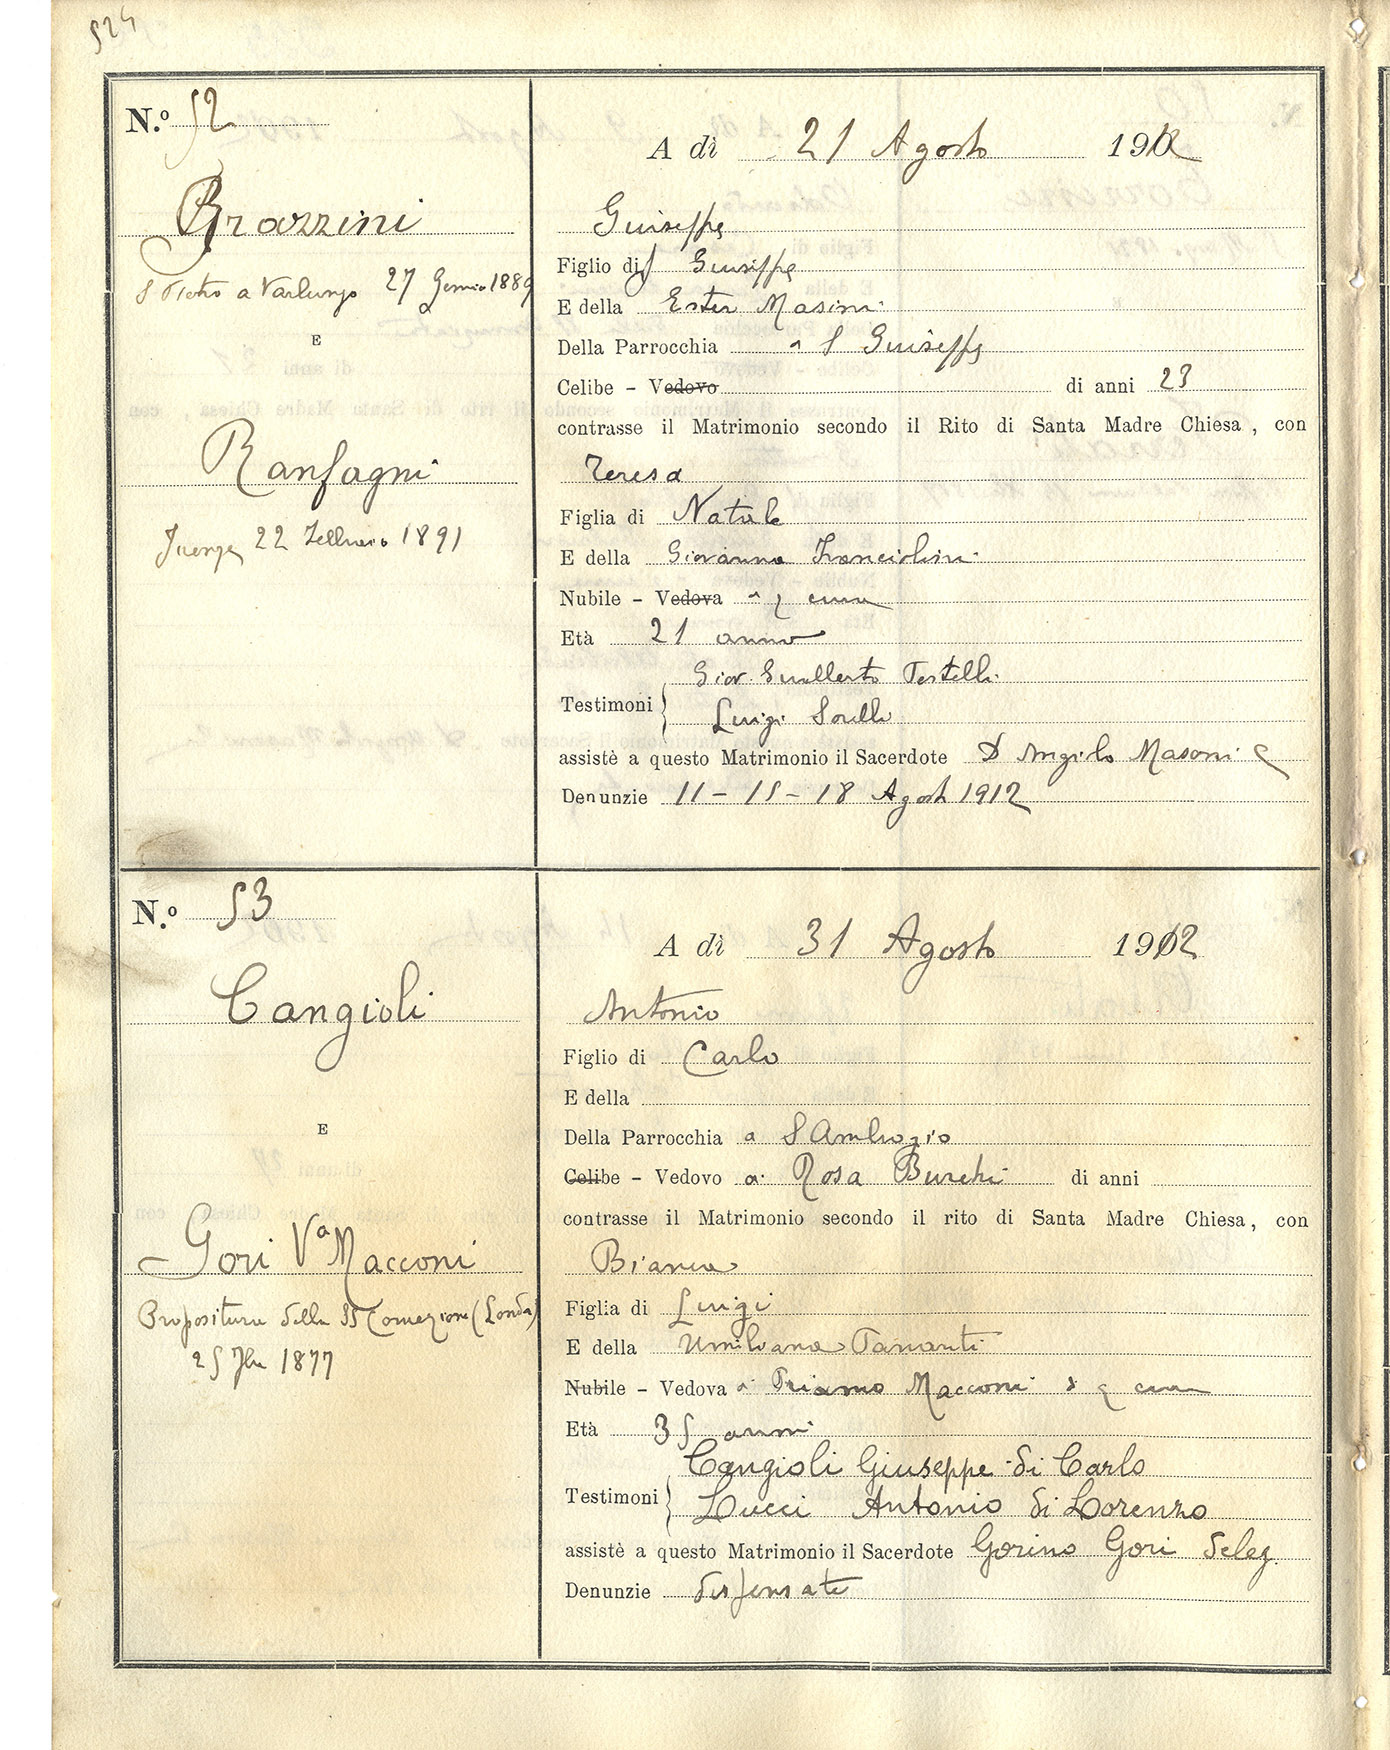 524
N.º 52
A dì 21 Agosto 1912
Brazzini
Giuseppe
Figlio di Giuseppe
S Pietro a Varlungo 27 Gennaio 1889
E della Ester Masini
E
Della Parrocchia a S Giuseppe
Celibe - Vedovo di anni 23
contrasse il Matrimonio secondo il Rito di Santa Madre Chiesa, con
Ranfagni
Teresa
Figlia di Natale
Firenze 22 Febbraio 1891
E della Giovanna Franciolini
Nubile - Vedova a q cura
Età 21 anno
Testimoni
Giov. Gualberto Testelli
Luigi Sorelli
assistè a questo Matrimonio il Sacerdote D Angiolo Masoni C
Denunzie 11 - 15 - 18 Agosto 1912
N.º 53
A dì 31 Agosto 1912
Cangioli
Antonio
Figlio di Carlo
E della
E
Della Parrocchia a S Ambrogio
Celibe - Vedovo a Rosa Burchi di anni
contrasse il Matrimonio secondo il rito di Santa Madre Chiesa, con
Gori Vª Macconi
Bianca
Propositura della SS Concezione (Londa)
Figlia di Luigi
25 7bre 1877
E della Umiliana Tananti
Nubile - Vedova a Priamo Macconi d q cura
Età 35 anni
Testimoni
Cangioli Giuseppe di Carlo
Lucci Antonio di Lorenzo
assistè a questo Matrimonio il Sacerdote Gorino Gori deleg.
Denunzie dispensate